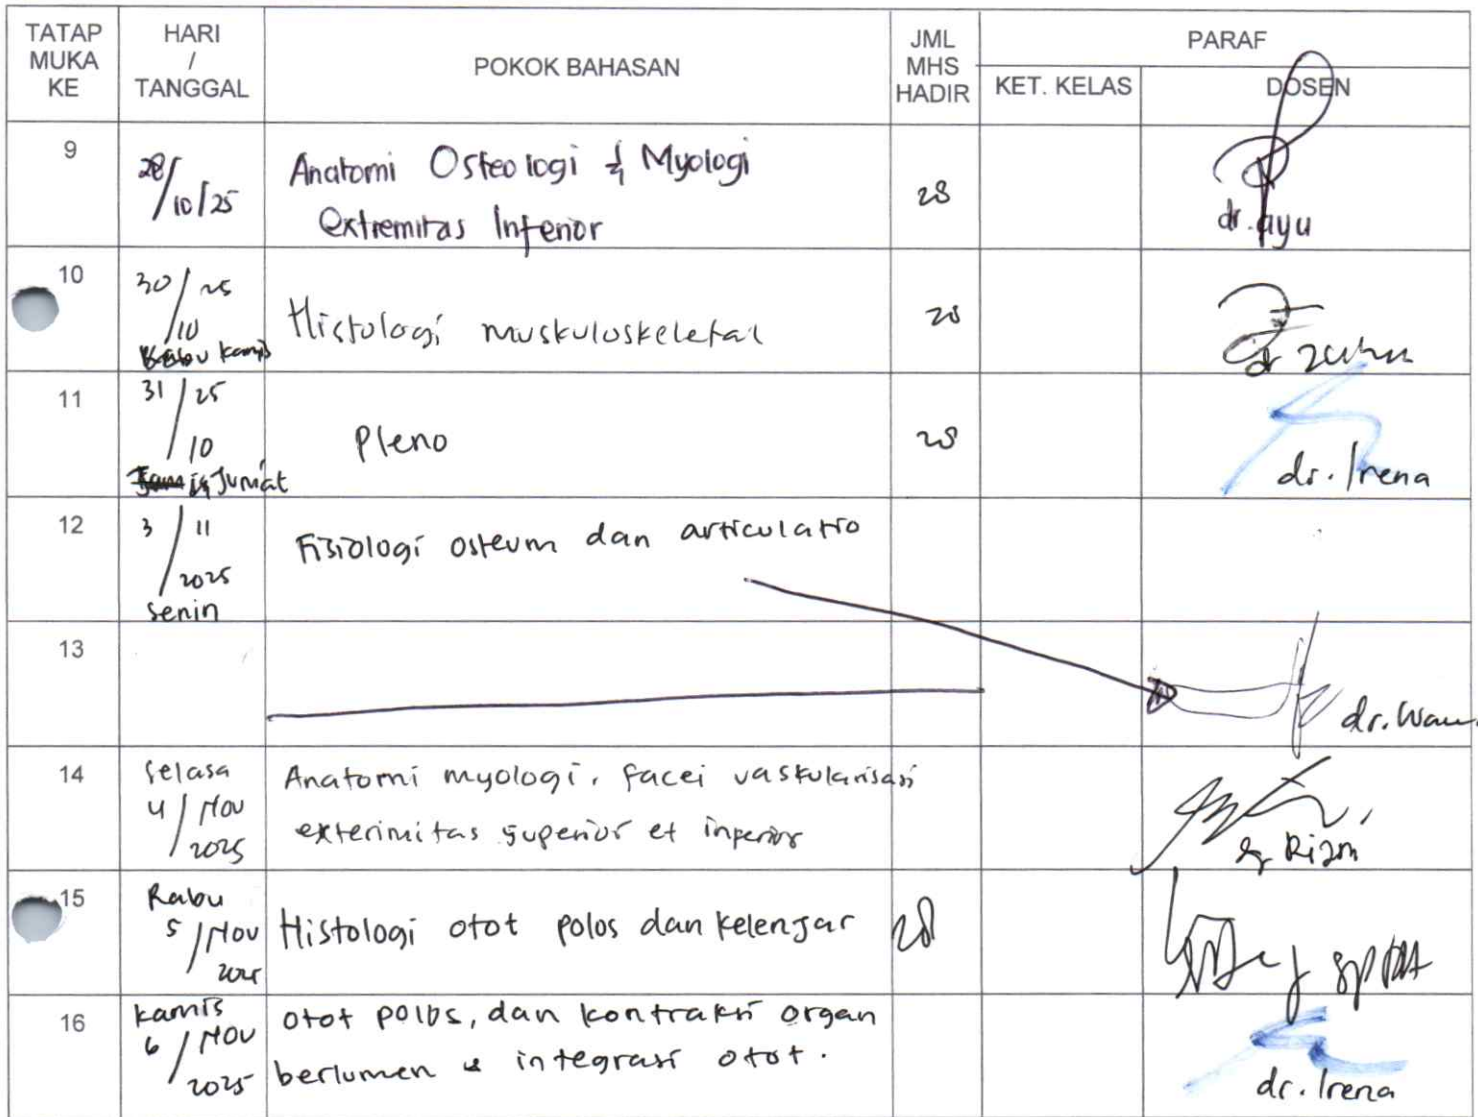 TATAP MUKA KE
HARI / TANGGAL
POKOK BAHASAN
JML MHS HADIR
PARAF
KET. KELAS
DOSEN
9
28/10/25
Anatomi Osteologi & Myologi
extremitas Inferior
28
dr. ayu
10
30/25
/10
kamis
Histologi muskuloskeletal
28
dr
11
31/25
/10
Jumat
Pleno
28
dr. Irena
12
3/11
2025
senin
Fisiologi osteum dan articulatio
13
dr.
14
selasa
4/Nov
2025
Anatomi myologi, facei vaskularisasi
exterimitas superior et inperior
15
Rabu
5/Nov
2025
Histologi otot polos dan kelenjar
28
16
kamis
6/Nov
2025
otot polos, dan kontraksi organ
berlumen & integrasi otot.
dr. Irena